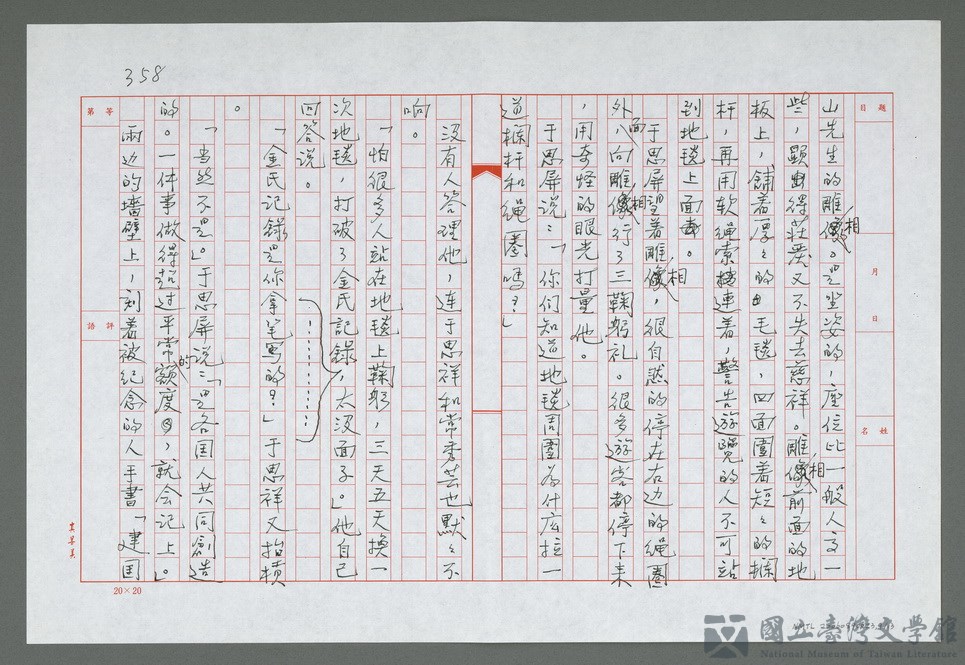 358
題目
月
日
姓名
山先生的雕像相。是坐姿的，座位比一般人高一
些，顯得莊嚴又不失去慈祥。雕像相前面的地
板上，舖着厚々的毛毯，四面圍着短々的欄
杆，再用软繩索連着，警告遊覽的人不可站
到地毯上面。
于思屏望着雕像相，很自然的停在右边的绳圈
外面，八向雕像相行了三鞠躬礼。很多遊客都停下来
，用奇怪的眼光打量他。
于思屏说：「你们知道地毯周圍为什広拉一
道欄杆和绳圈吗？」
没有人答理他，连于思祥和常秀芸也默々不
响。
「怕很多人站在地毯上鞠躬，三天五天换一
次地毯，打破了金氏記錄，太没面子。」他自己
回答说。
「金氏記錄是你拿笔写的？」于思祥又抬摃
。
「当然不是。」于思屏说：「是各国人共同創造
的。一件事做得超过平常的額度，就会记上。」
兩边的墙壁上，刻着被纪念的人手書「建国
第 等
評語
20×20
國立臺灣文學館
National Museum of Taiwan Literature